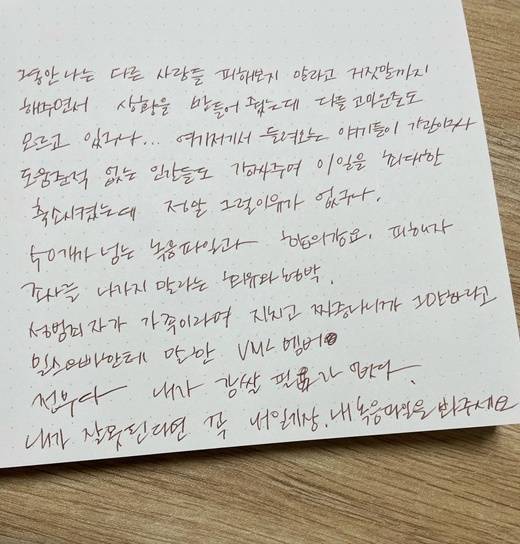 그동안 나는 다른 사람들 피해보지 말라고 거짓말까지
해주면서 상황을 만들어 줬는데 다들 고마운줄도
모르고 있구나... 여기저기서 들려오는 얘기들이 가관이구나
도움준적 없는 인간들도 감싸주며 이일을 최대한
축소시켰는데 정말 그럴이유가 없구나.
40개가 넘는 녹음파일과 합의강요. 피해자
조사를 나가지 말라는 회유와 협박.
성범죄자가 가족이라며 지치고 짜증나니까 그만하라고
오빠한테 말한 VML 멤버
전부다 내가 감쌀 필요가 없다.
내가 잘못된다면 꼭 내일기장, 내 녹음파일을 봐주세요